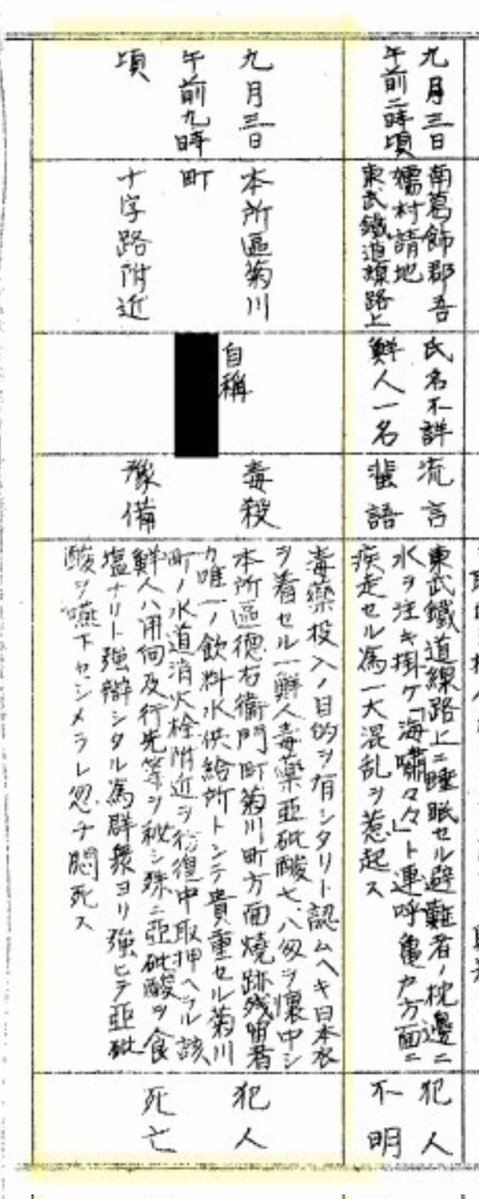 九月三日
午前二時頃
南葛飾郡吾
嬬村請地
東武鐵道線路上
氏名不詳
鮮人一名
流言
蜚語
東武鐵道線路上ニ睡眠セル避難者ノ枕邊ニ
水ヲ注キ掛ケ「海嘯々々」ト連呼亀戸方面ニ
疾走セル為一大混乱ヲ惹起ス
犯人
不明
九月三日
午前九時
頃
本所區菊川
町
十字路附近
自稱
毒殺
豫備
毒藥投入ノ目的ヲ有シタリト認ムヘキ日本衣
ヲ着セル一鮮人毒藥亜砒酸七、八匁ヲ懐中シ
本所區徳右衛門町菊川町方面焼跡残留者
カ唯一ノ飲料水供給所トシテ貴重セル菊川
町ノ水道消火栓附近ヲ彷徨中取押ヘラル該
鮮人ハ用向及行先等ヲ秘シ殊ニ亜砒酸ヲ食
塩ナリト強辯シタル為群衆ヨリ強ヒテ亜砒
酸ヲ嚥下セシメラレ忽チ悶死ス
犯人
死亡